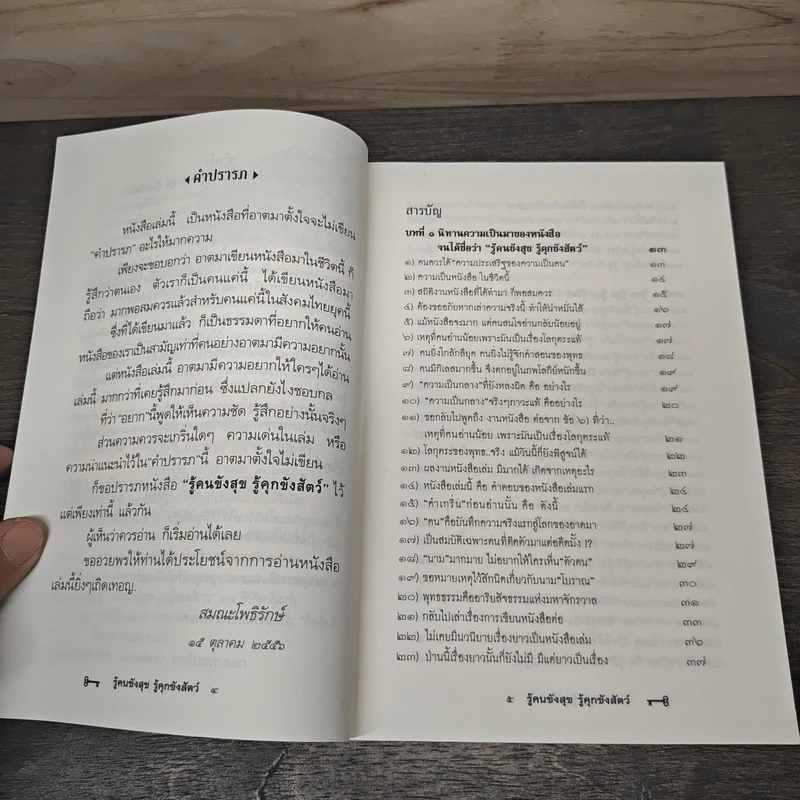 คำปรารภ
หนังสือเล่มนี้ เป็นหนังสือที่อาตมาตั้งใจจะไม่เขียน
"คำปรารภ" อะไรให้มากความ
เพียงจะขอบอกว่า อาตมาเขียนหนังสือมาในชีวิตนี้ ก็
รู้สึกว่าตนเอง ตัวเราก็เป็นคนแค่นี้ ได้เขียนหนังสือมา
ถือว่า มากพอสมควรแล้วสำหรับคนแค่นี้ในสังคมไทยยุคนี้
ซึ่งที่ได้เขียนมาแล้ว ก็เป็นธรรมดาที่อยากให้คนอ่าน
หนังสือของเราเป็นสามัญเท่าที่คนอย่างอาตมามีความอยากนั้น
แต่หนังสือเล่มนี้ อาตมามีความอยากให้ใครๆได้อ่าน
เล่มนี้ มากกว่าที่เคยรู้สึกมาก่อน ซึ่งแปลกยังไงชอบกล
ที่ว่า "อยาก"นี้พูดให้เห็นความชัด รู้สึกอย่างนั้นจริงๆ
ส่วนความควรจะเกริ่นใดๆ ความเด่นในเล่ม หรือ
ความน่าแนะนำไว้ใน"คำปรารภ"นี้ อาตมาตั้งใจไม่เขียน
ก็ขอปรารภหนังสือ "รู้คนขังสุข รู้คุกขังสัตว์" ไว้
แต่เพียงเท่านี้ แล้วกัน
ผู้เห็นว่าควรอ่าน ก็เริ่มอ่านได้เลย
ขออวยพรให้ท่านได้ประโยชน์จากการอ่านหนังสือ
เล่มนี้ยิ่งๆเถิดเทอญ.
สมณะโพธิรักษ์
๑๕ ตุลาคม ๒๕๕๖
รู้คนขังสุข รู้คุกขังสัตว์ ๔
สารบัญ
บทที่ ๑ นิทานความเป็นมาของหนังสือ
จนได้ชื่อว่า "รู้คนขังสุข รู้คุกขังสัตว์" ๑๓
๑) คนควรได้ "ความประเสริฐของความเป็นคน" ๑๓
๒) ความเป็นหนังสือ ในชีวิตนี้ ๑๔
๓) สถิติงานหนังสือที่ได้ทำมา ก็พอสมควร ๑๕
๔) ต้องขออภัยหากเล่าความจริงนี้ ทำให้น่าหมั่นไส้ ๑๖
๕) แม้หนังสือจะมาก แต่คนสนใจอ่านกลับน้อยอยู่ ๑๗
๖) เหตุที่คนอ่านน้อยเพราะมันเป็นเรื่องโลกุตระแท้ ๑๗
๗) คนยิ่งใกล้กลียุค คนยิ่งไม่รู้จักคำสอนของพุทธ ๑๘
๘) คนมีกิเลสมากขึ้น จึงตกอยู่ในภพโลกีย์หนักขึ้น ๑๙
๙) "ความเป็นกลาง"ที่ยังหลงผิด คือ อย่างไร ๑๙
๑๐) "ความเป็นกลาง"จริงๆภาวะแท้ คืออย่างไร ๒๐
๑๑) ขอกลับไปพูดถึง งานหนังสือ ต่อจาก ข้อ ๖) ที่ว่า..
เหตุที่คนอ่านน้อย เพราะมันเป็นเรื่องโลกุตระแท้ ๒๑
๑๒) โลกุตระของพุทธ..จริง แม้วันนี้ก็ยังพิสูจน์ได้ ๒๒
๑๓) ผลงานหนังสือเล่ม มีมากได้ เกิดจากเหตุอะไร ๒๓
๑๔) หนังสือเล่มนี้ คือ คำตอบของหนังสือเล่มแรก ๒๔
๑๕) "คำเกริ่น"ก่อนอ่านนั้น คือ ดังนี้ ๒๔
๑๖) "ตน"คือบันทึกความจริงแรกสู่โลกของอาตมา ๒๗
๑๗) เป็นสมบัติเฉพาะตนที่ติดตัวมาแต่อดีตมั้ง !? ๒๗
๑๘) "นาม"มากมาย ไม่อยากให้ใครเห็น"ตัวตน" ๒๙
๑๙) ขอหมายเหตุไว้สักนิดเกี่ยวกับนาม"โบราณ" ๓๐
๒๐) พุทธธรรมคืออาริยสัจธรรมแห่งมหาจักรวาล ๓๑
๒๑) กลับไปเล่าเรื่องการเขียนหนังสือต่อ ๓๓
๒๒) ไม่เคยมีนวนิยายเรื่องยาวเป็นหนังสือเล่ม ๓๖
๒๓) ป่านนี้เรื่องยาวนั้นก็ยังไม่มี มีแต่ยาวเป็นเรื่อง ๓๗
๕ รู้คนขังสุข รู้คุกขังสัตว์